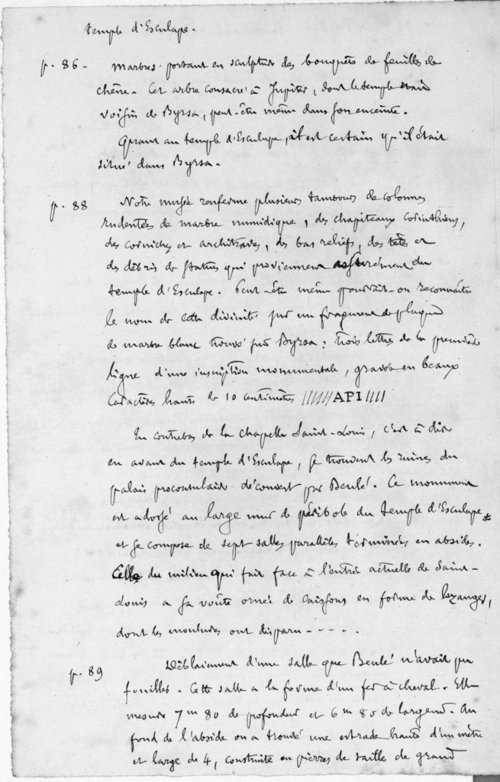 temple d'Esculape.
p. 86 - marbres portant en sculpture des bouquets de feuilles de
chêne. Cet arbre consacré à Jupiter, dont le temple était
voisin de Byrsa, peut-être même dans son enceinte.
Quant au temple d'Esculape, il est certain qu'il était
situé dans Byrsa.
p. 88 Notre musée renferme plusieurs tambours de colonnes
rudentées de marbre numidique, des chapiteaux corinthiens,
des corniches et architraves, des bas reliefs, des têtes et
des débris de statues qui proviennent assurément du
temple d'Esculape. Peut-être même pourrait-on reconnaître
le nom de cette divinité sur un fragment de plaque
de marbre blanc trouvé sur Byrsa : trois lettres de la première
ligne d'une inscription monumentale, gravée en beaux
caractères hauts de 10 centimètres /////API////
En contrebas de la chapelle Saint-Louis, c'est à dire
en avant du temple d'Esculape, se trouvent les ruines du
palais proconsulaire découvert par Beulé. Ce monument
est adossé au large mur de péribole du temple d'Esculape *
et se compose de sept salles parallèles terminées en absides.
Celle du milieu qui fait face à l'entrée actuelle de Saint-
Louis a sa voûte ornée de caissons en forme de lozanges,
dont les moulures ont disparu - - - - .
p. 89 Déblaiement d'une salle que Beulé n'avait pu
fouiller. Cette salle a la forme d'un fer à cheval. Elle
mesure 7m 80 de profondeur et 6m 80 de largeur. Au
fond de l'abside on a trouvé une estrade haute d'un mètre
et large de 4, construite en pierres de taille de grand